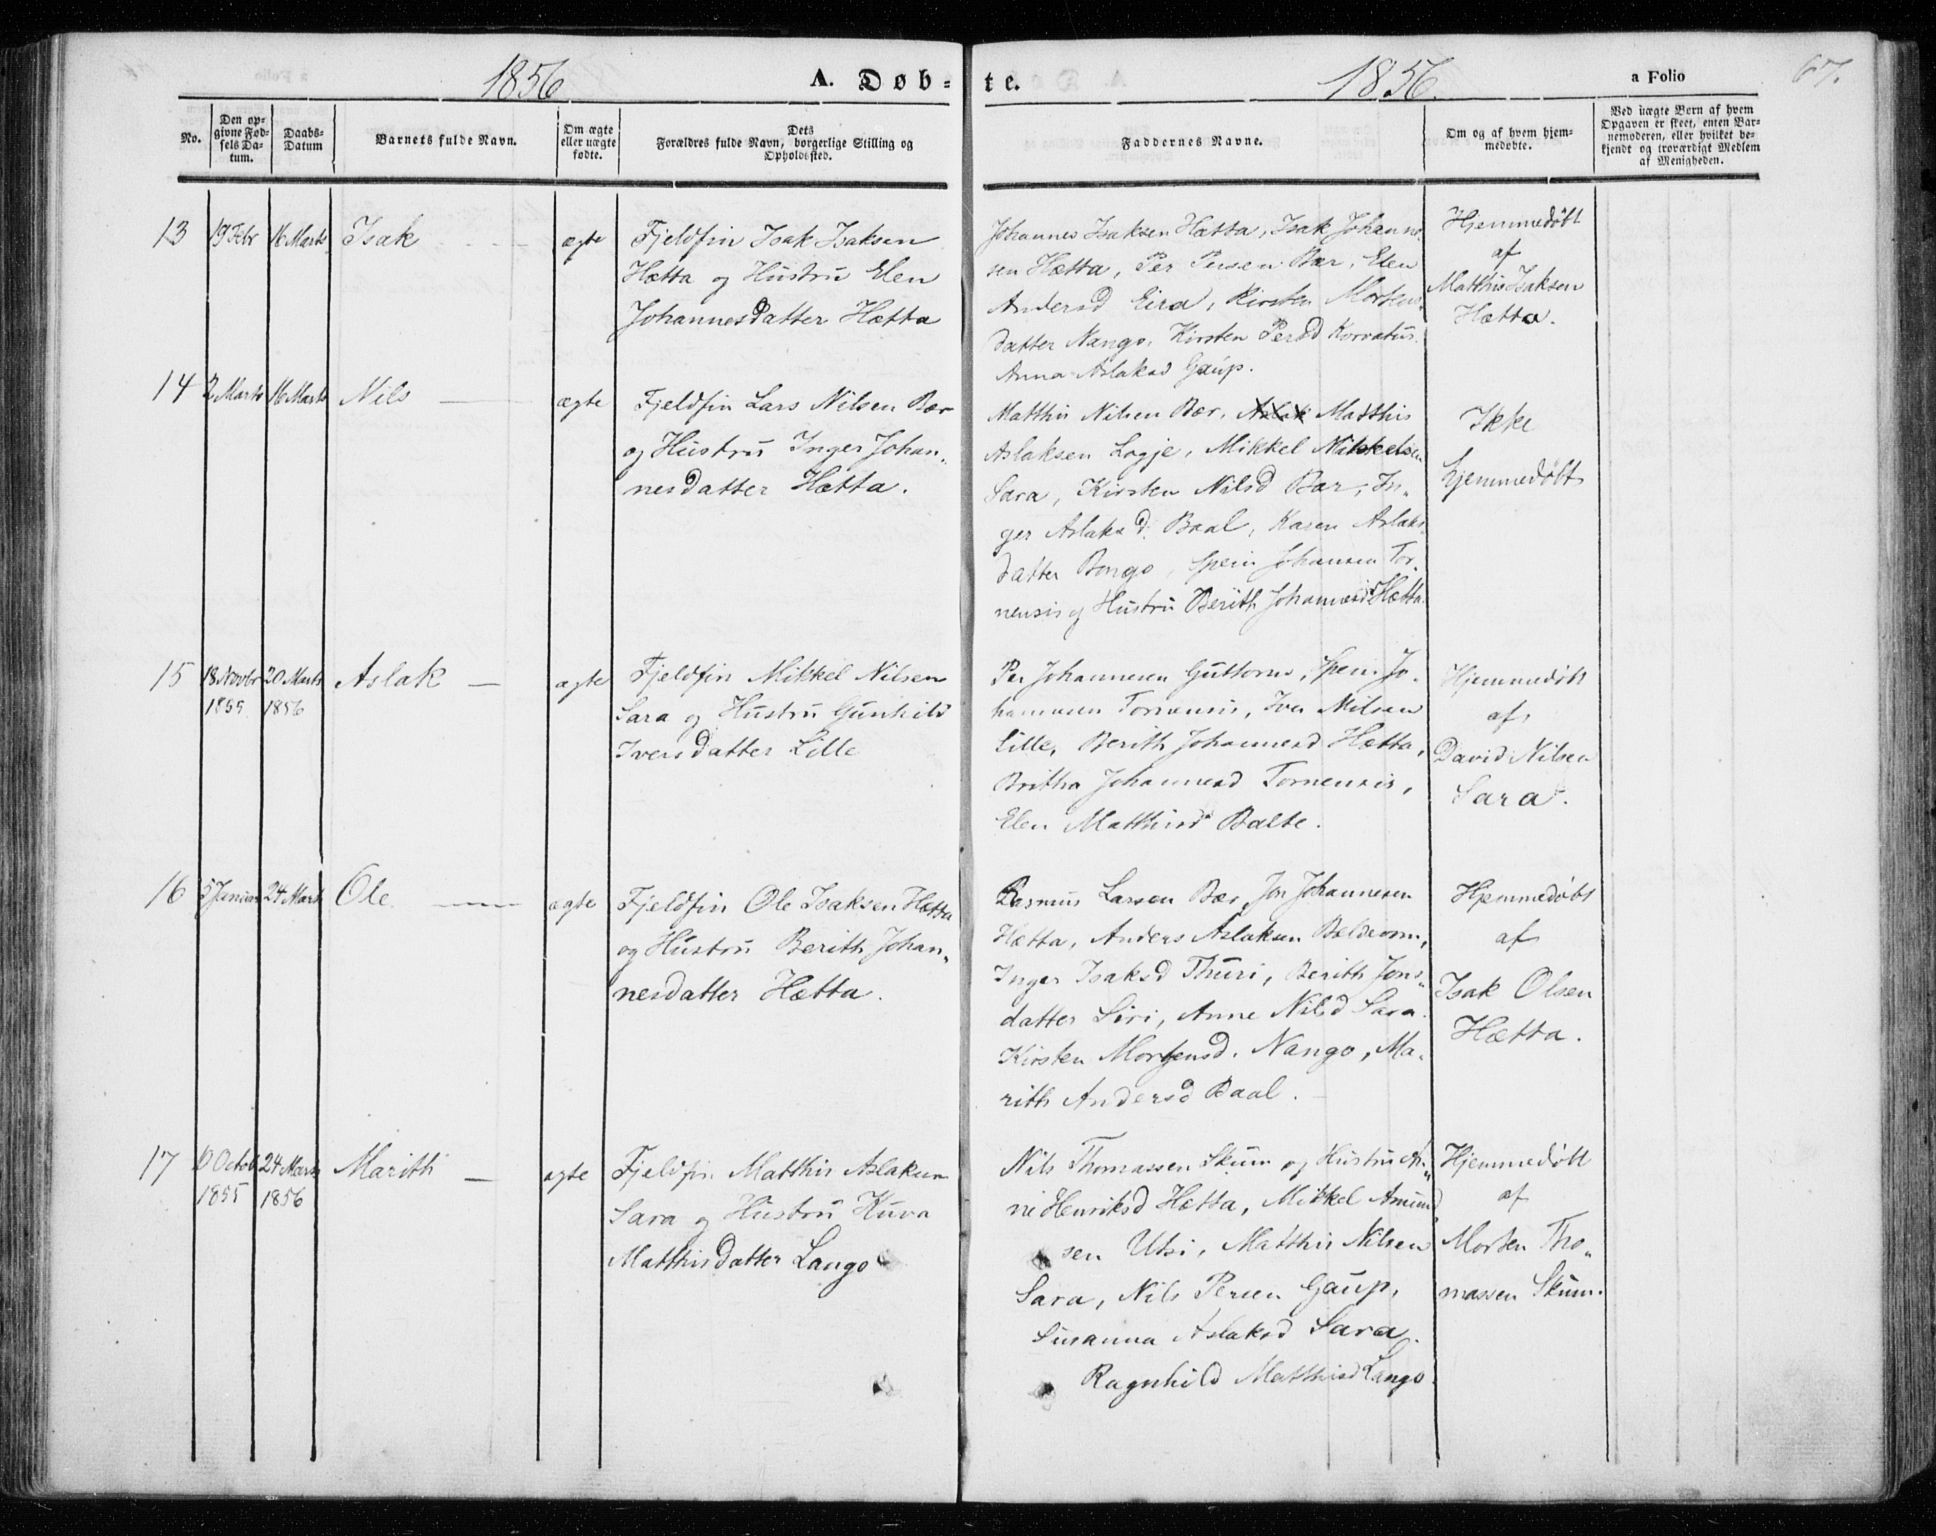 1856 A. Døb-
te. 1856. a Folio 67.
No.
Den op-
givne Fød-
sels Da-
tum.
Daabs-
Datum
Barnets fulde Navn.
Om ægte
eller uægte
fødte.
Dets
Forældres fulde Navn, borgerlige Stilling og
Opholdssted.
Faddernes Navne.
Om og af hvem hjem-
medøbte.
Ved uægte Børn af hvem
Opgaven er skeet, enten Bar-
nemoderen, eller hvilket be-
kjendt og troværdigt Medlem
af Menigheden.
13 19 Febr 16 Marts Isak ægte
Fjeldfin Isak Isaksen
Hætta og Hustru Elen
Johannesdatter Hætta
Johannes Isaksen Hætta, Isak Johannes-
sen Hætta, Per Persen Bær, Elen
Andersd Eira, Kirsten Mortens-
datter Nango, Kirsten Persd Korvatus.
Anna Aslaksd Gaup.
Hjemmedøbt
af
Matthis Isaksen
Hætta.
14 2 Marts 16 Marts Nils ægte
Fjeldfin Lars Nilsen Bær
og Hustru Inger Johan-
nesdatter Hætta.
Matthis Nilsen Bær, Aslak Matthis
Aslaksen Logje, Mikkel Mikkelsen
Sara, Kirsten Nilsd Bær, In-
ger Aslaksd. Baal, Karen Aslaks-
datter Bongo, Spein Johansen Tor-
nensis og Hustru Berith Johannesd Hætta.
Ikke
hjemmedøbt
15 18 Novbr 20 Marts Aslak ægte
1855 1856
Fjeldfin Mikkel Nilsen
Sara og Hustru Gunhild
Iversdatter Lille
Per Johannesen Guttorm, Spein Jo-
hannesen Tornensis, Iver Nilsen
Lille, Berith Johannesd Hætta,
Britha Johannesd Tornensis,
Elen Matthisd Balte.
Hjemmedøbt
af
David Nilsen
Sara.
16 5 Januar 24 Marts Ole ægte
Fjeldfin Ole Isaksen Hætta
og Hustru Berith Johan-
nesdatter Hætta.
Rasmus Larsen Bær, Jon Johannesen
Hætta, Anders Aslaksen Baldevom,
Inger Isaksd Thuri, Berith Jons-
datter Siri, Anne Nilsd Sara.
Kirsten Mortensd. Nango, Ma-
rith Andersd Baal.
Hjemmedøbt
af
Isak Olsen
Hætta.
17 10 Octob 24 Marts Marith ægte
1855 1856
Fjeldfin Matthis Aslaksen
Sara og Hustru Kuva
Matthisdatter Lango
Nils Thomassen Skum og Hustru An-
ne Henriksd Hætta, Mikkel Amund-
sen Utsi, Matthis Nilsen
Sara, Nils Persen Gaup,
Susanna Aslaksd Sara.
Ragnhild Matthisd Lango.
Hjemmedøbt
af
Morten Tho-
massen Skum.